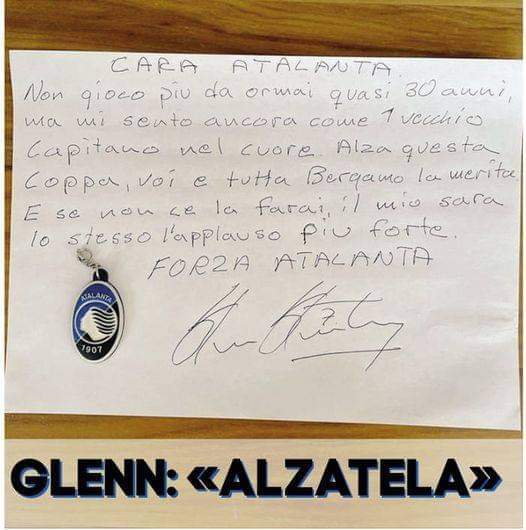 CARA ATALANTA
Non gioco più da ormai quasi 30 anni,
ma mi sento ancora come 1 vecchio
Capitano nel cuore. Alza questa
Coppa, voi e tutta Bergamo la merita.
E se non ce la farai, il mio sara
lo stesso l'applauso più forte.
FORZA ATALANTA
ATALANTA
1907
GLENN: «ALZATELA»